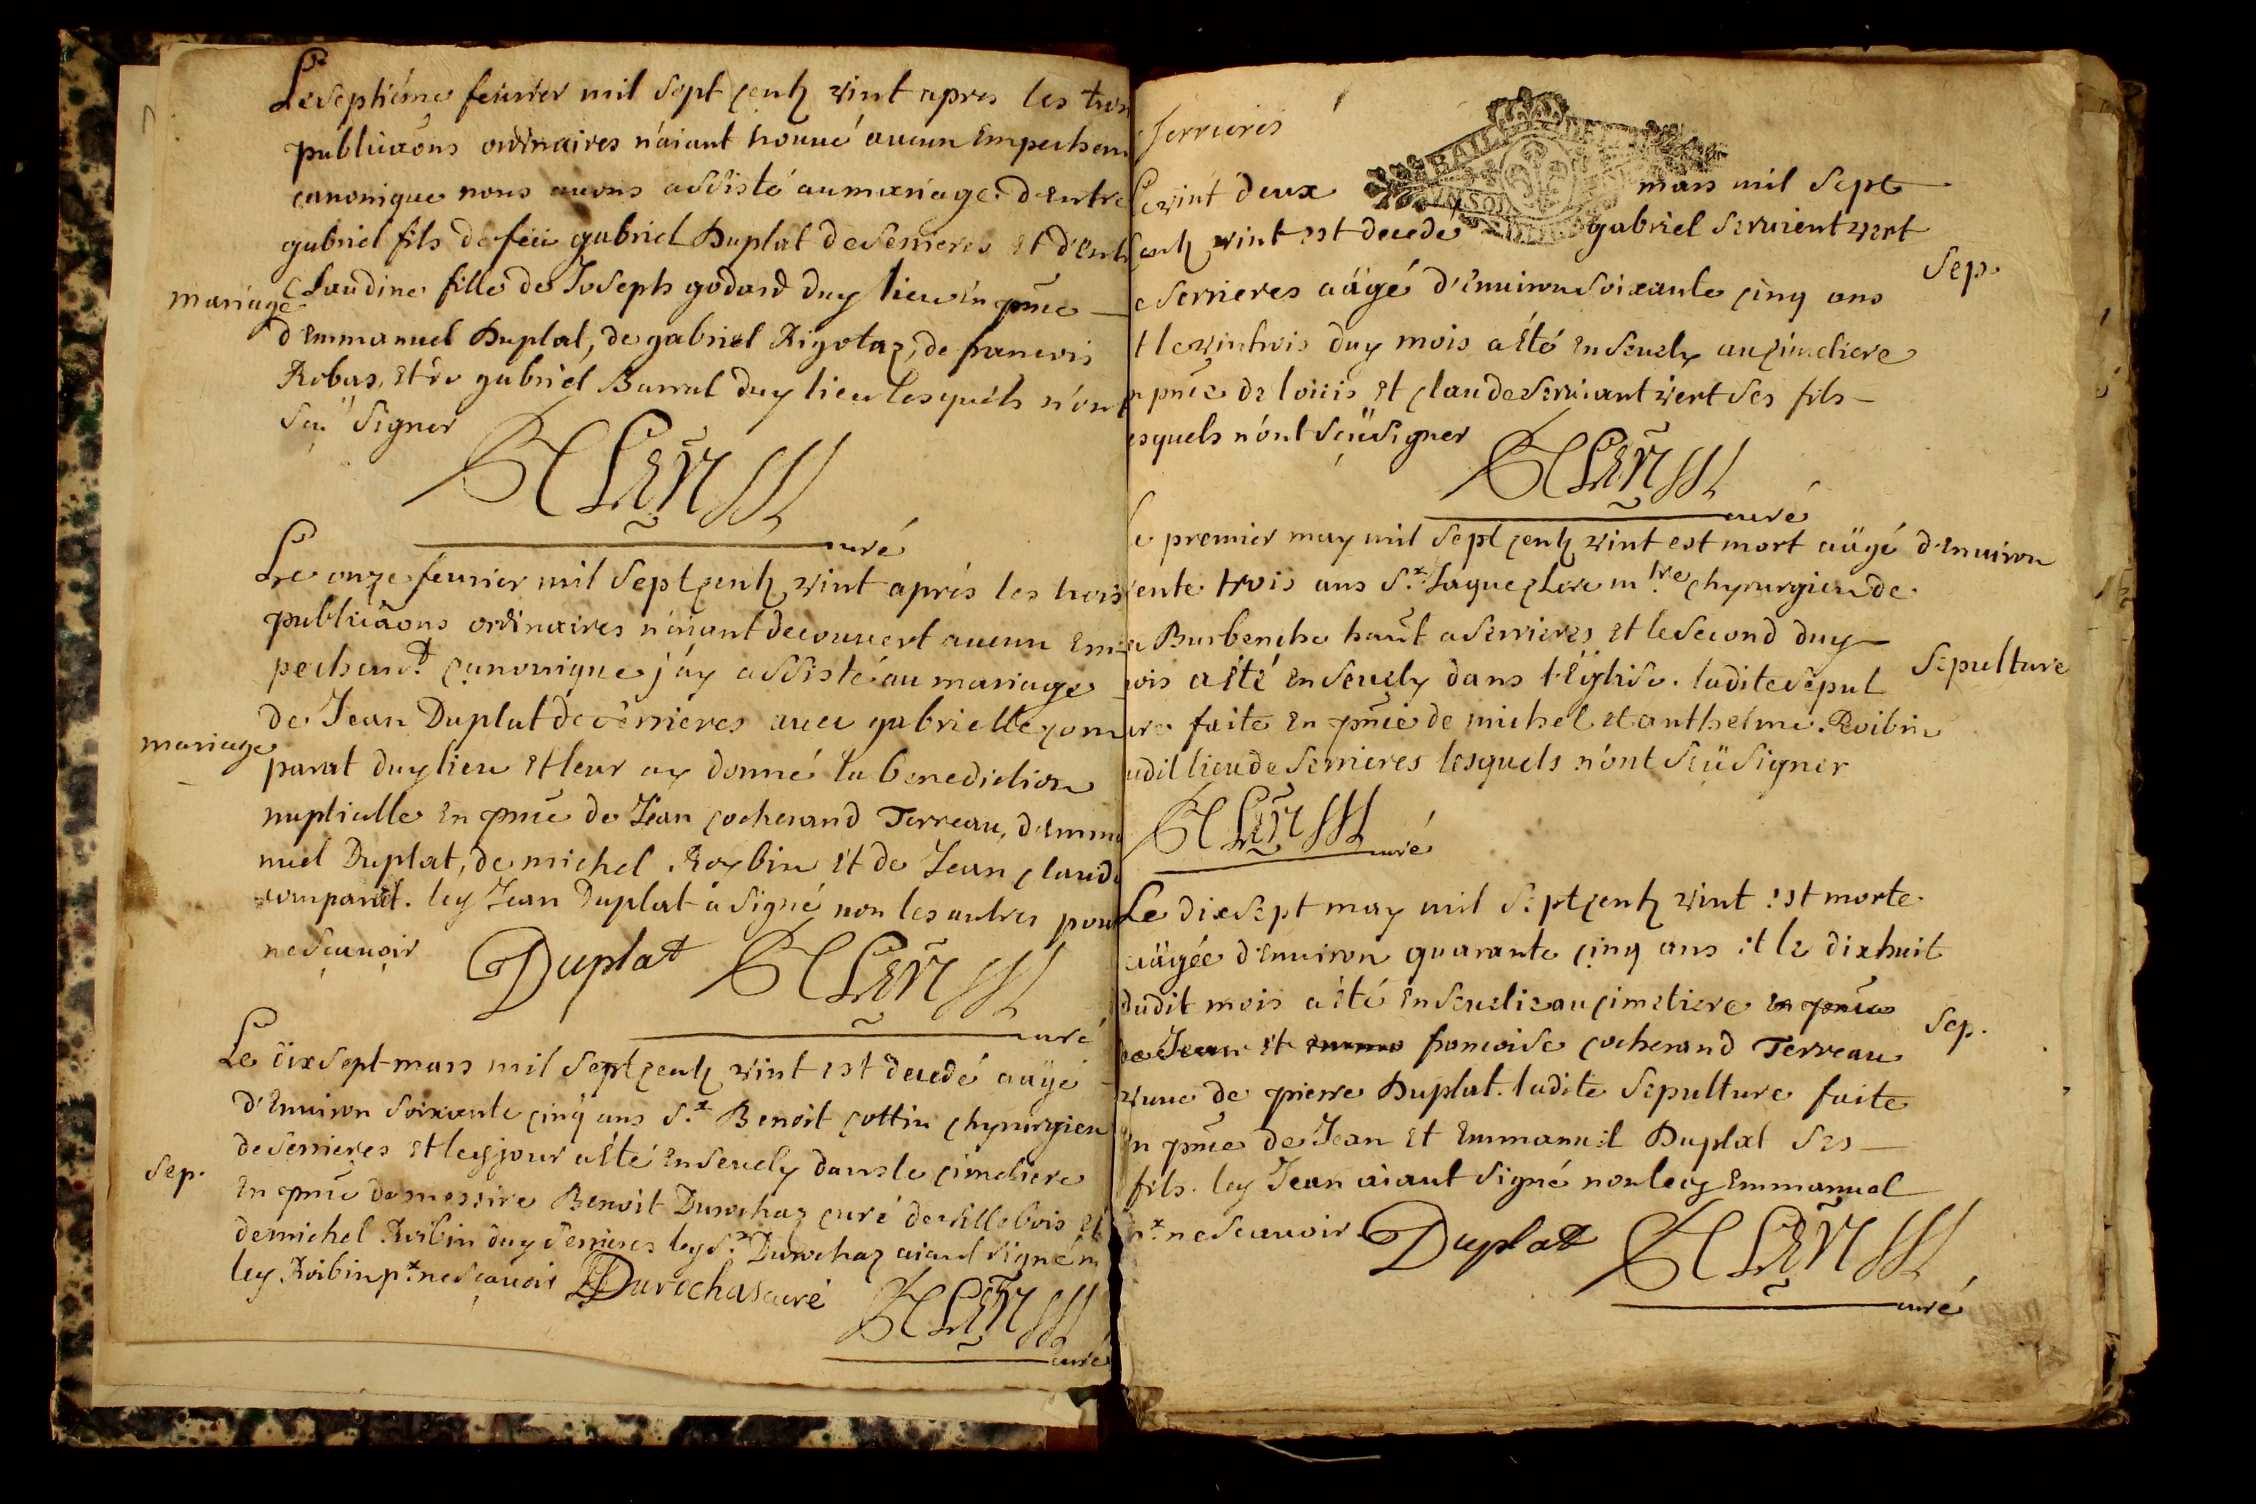 Le septiéme feurier mil sept çentz vint apres les trois
publicaõns ordinaires n'aiant trouué aucun Empechem
canonique nous auons assisté au mariage d'Entre
gabriel fils de feü gabriel Duplat de serrieres Et d'Entre
Claudine fille de Joseph godard duy lieu En pñce
mariage
d'Emmanuel Duplat, de gabriel Rigotaz, de francois
Robas, Et de gabriel Barral duy lieu lesquels n'ont
sçü signer
curé
Le onze feurier mil sept çentz vint aprés les trois
publicaõns ordinaires n'aiant decouuert aucun Em
pechemt çanonique j'ay assisté au mariage
de Jean Duplat de serrieres auec gabrielle çom
mariage
parat duy lieu Et leur ay donné la benediction
nuptialle En pñce de Jean çocherand Terreau, d'Emma
nuel Duplat, de michel Roybin Et de Jean çlaude
comparat. ley Jean Duplat a signé non les autres pour
ne sçauoir
Duplat
curé
Le dix sept mars mil sept çentz vint est decedé aagé
d'Enuiron soixante çinq ans sr Benoit çottin çhyrurgien
de serrieres Et ley jour a Eté Enseuely dans le çimetiere
sep.
En pñce de messire Benoit Durochaz curé de villebois Et
de michel Roibin duy serrieres ley sr Durochaz aiant signé n
ley Roibin pr ne sçauoir
Durochas curé
curé
serrieres
BAIL
SOL
Le vint deux mars mil sept
çentz vint est decedé gabriel seruient vert
sep.
e serrieres aägé d'Enuiron soixante çinq ans
t le vintrois duy mois a Eté Enseuely au çimetiere
n pñce de loüis Et çlaude seruiant vert ses fils
esquels n'ont sçü signer
curé
Le premier may mil sept çentz vint est mort aägé d'Enuiron
rente trois ans sr Jaque çlere mtre çhyrurgien de
a Burbenche haut a serrieres Et le second duy
sepulture
ois a Eté Enseuely dans l'Eglise. ladite sepul
ure faite En pñce de michel Et anthelme Roibin
udit lieu de serrieres lesquels n'ont sçü signer
curé
Le dix sept may mil sept çentz vint est morte
aägée d'Enuiron quarante çinq ans Et le dixhuit
dudit mois a Eté Enseuelie au çimetiere En pñce
sep.
de Jean Et francoise çocherand Terreau
vuue de pierre Duplat. ladite sepulture faite
En pñce de Jean Et Emmanuel Duplat ses
fils. ley Jean aiant signé non ley Emmanuel
pr ne scauoir
Duplat
curé